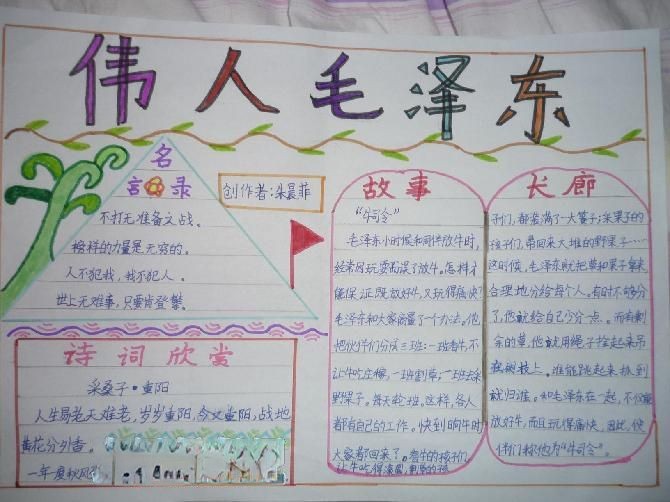 伟人毛泽东
名
言 录
创作者:朱晨菲
不打无准备之战。
榜样的力量是无穷的。
人不犯我,我不犯人。
世上无难事,只要肯登攀。
诗词欣赏
采桑子·重阳
人生易老天难老,岁岁重阳,今又重阳,战地
黄花分外香。
一年一度秋风
故事
“牛司令”
毛泽东小时候和同伴放牛时,
经常因玩耍而误了放牛。怎样才
能保证既放好牛,又玩得痛快?
毛泽东和大家商量了个办法。他
把伙伴们分成三班:一班看牛,不
让牛吃庄稼,一班割草;一班去采
野果子。每天轮班。这样,各人
都有自己的工作。快到晌午时
大家都回来了。看牛的孩子们
让牛吃得滚圆,割草的孩
长廊
子们,都装满了一大篮子;采果子的
孩子们,带回来大堆的野果子……
这时候,毛泽东就把草和果子拿来
合理地分给每个人。有时不够分
了,他就给自己少分一点。而有剩
余的草,他就用绳子拴起来吊
在树枝上。谁能跳起来抓到
就归谁。和毛泽东在一起,不仅能
放好牛,而且玩得痛快,因此,伙
伴们称他为“牛司令”。